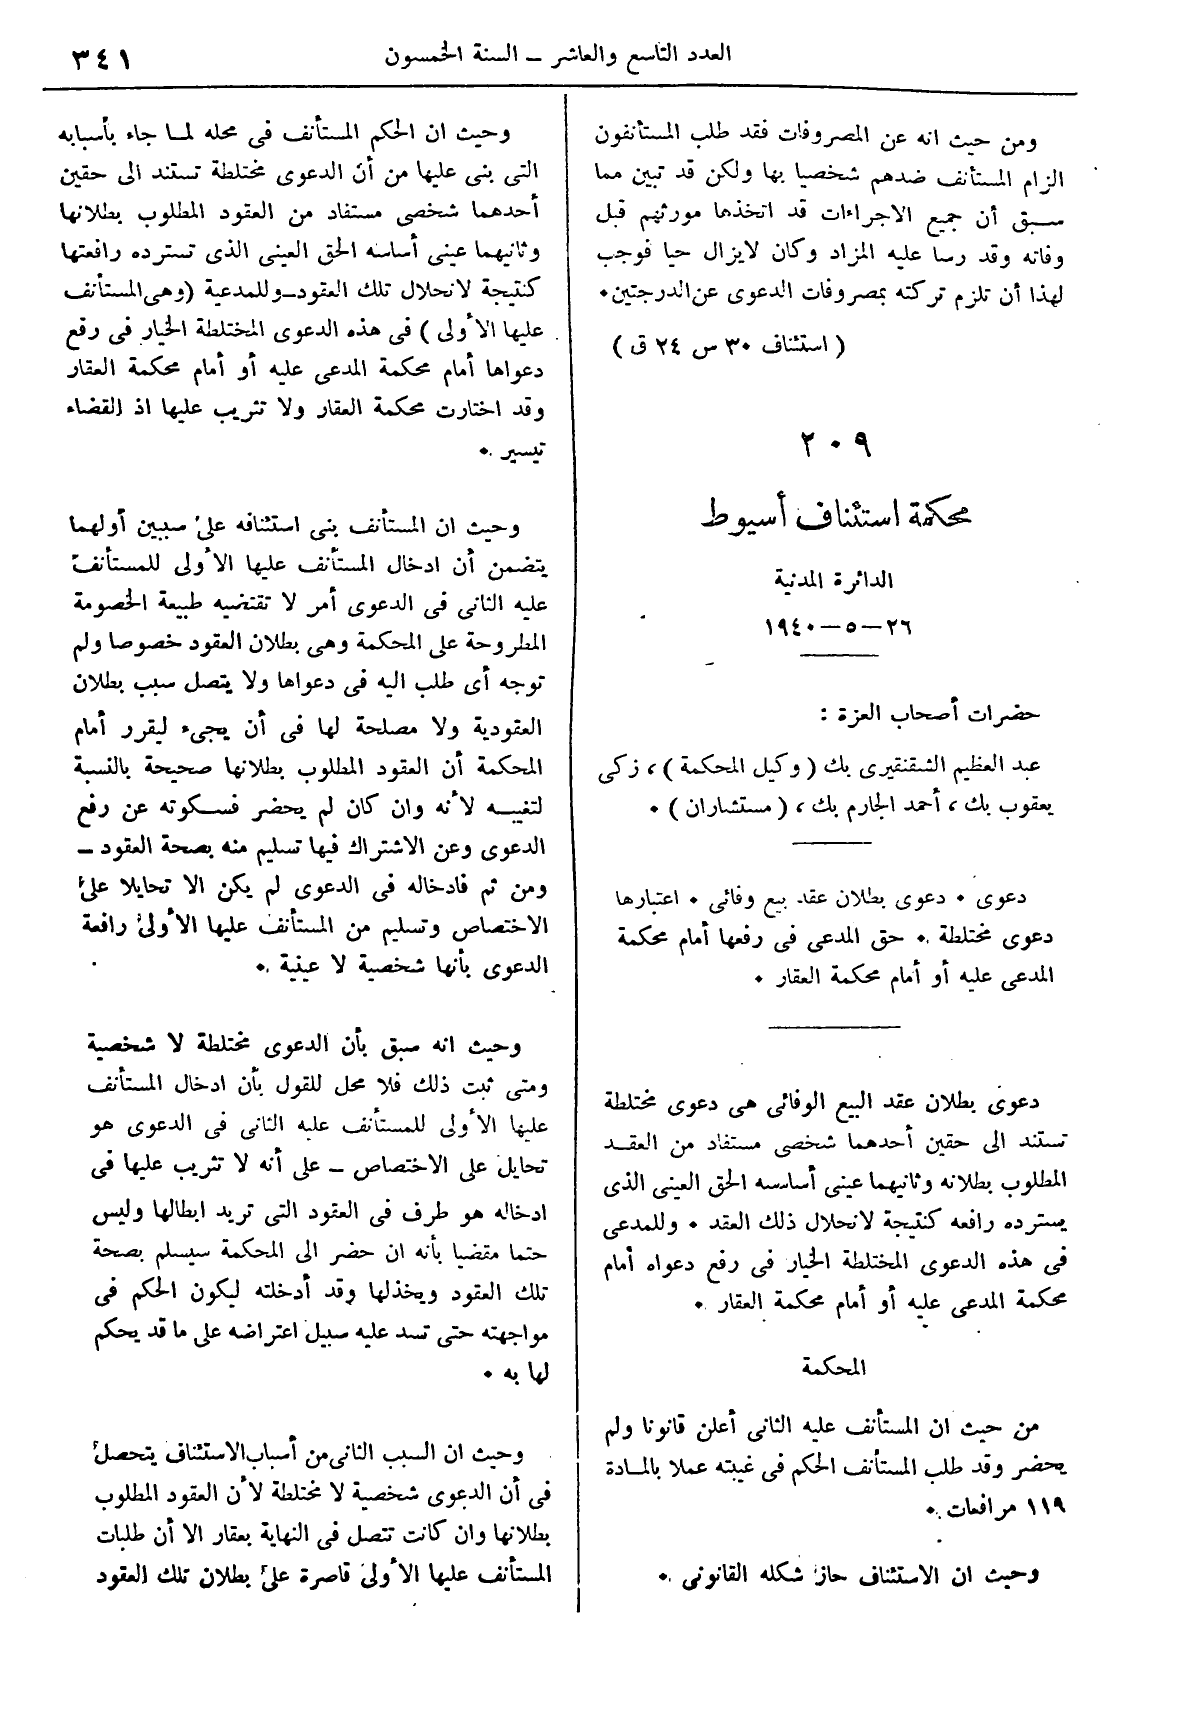 العدد التاسع والعاشر – السنة الخمسون
٣٤١
ومن حيث انه عن المصروفات فقد طلب المستأنفون
الزام المستأنف ضدهم شخصيا بها ولكن قد تبين مما
سبق أن جميع الاجراءات قد اتخذها مورثهم قبل
وفاته وقد رسا عليه المزاد وكان لايزال حيا فوجب
لهذا أن تلزم تركته بمصروفات الدعوى عن الدرجتين .
( استئناف ٣٠ س ٢٤ ق )
٢٠٩
محكمة استئناف أسيوط
الدائرة المدنية
٢٦ – ٥ – ١٩٤٠
حضرات أصحاب العزة :
عبد العظيم الشقنقيرى بك ( وكيل المحكمة ) ، زكى
يعقوب بك ، أحمد الجارم بك ، ( مستشاران ) .
دعوى . دعوى بطلان عقد بيع وفائى . اعتبارها
دعوى مختلطة . حق المدعى فى رفعها أمام محكمة
المدعى عليه أو أمام محكمة العقار .
دعوى بطلان عقد البيع الوفائى هى دعوى مختلطة
تستند الى حقين أحدهما شخصى مستفاد من العقد
المطلوب بطلانه وثانيهما عينى أساسه الحق العينى الذى
يسترده رافعه كنتيجة لانحلال ذلك العقد . وللمدعى
فى هذه الدعوى المختلطة الخيار فى رفع دعواه أمام
محكمة المدعى عليه أو أمام محكمة العقار .
المحكمة
من حيث ان المستأنف عليه الثانى أعلن قانونا ولم
يحضر وقد طلب المستأنف الحكم فى غيبته عملا بالمادة
١١٩ مرافعات .
وحيث ان الاستئناف حاز شكله القانونى .
وحيث ان الحكم المستأنف فى محله لما جاء بأسبابه
التى بنى عليها من أن الدعوى مختلطة تستند الى حقين
أحدهما شخصى مستفاد من العقود المطلوب بطلانها
وثانيهما عينى أساسه الحق العينى الذى تسترده رافعتها
كنتيجة لانحلال تلك العقود – وللمدعية (وهى المستأنف
عليها الأولى ) فى هذه الدعوى المختلطة الخيار فى رفع
دعواها أمام محكمة المدعى عليه أو أمام محكمة العقار
وقد اختارت محكمة العقار ولا تثريب عليها اذ القضاء
تيسير .
وحيث ان المستأنف بنى استئنافه على سببين أولهما
يتضمن أن ادخال المستأنف عليها الأولى للمستأنف
عليه الثانى فى الدعوى أمر لا تقتضيه طبيعة الخصومة
المطروحة على المحكمة وهى بطلان العقود خصوصا ولم
توجه أى طلب اليه فى دعواها ولا يتصل سبب بطلان
العقودية ولا مصلحة لها فى أن يجىء ليقرر أمام
المحكمة أن العقود المطلوب بطلانها صحيحة بالنسبة
لنفسه لأنه وان كان لم يحضر فسكوته عن رفع
الدعوى وعن الاشتراك فيها تسليم منه بصحة العقود –
ومن ثم فادخاله فى الدعوى لم يكن الا تحايلا على
الاختصاص وتسليم من المستأنف عليها الأولى رافعة
الدعوى بأنها شخصية لا عينية .
وحيث انه سبق بأن الدعوى مختلطة لا شخصية
ومتى ثبت ذلك فلا محل للقول بأن ادخال المستأنف
عليها الأولى للمستأنف عليه الثانى فى الدعوى هو
تحايل على الاختصاص – على أنه لا تثريب عليها فى
ادخاله هو طرف فى العقود التى تريد ابطالها وليس
حتما مقضيا بأنه ان حضر الى المحكمة سيسلم بصحة
تلك العقود ويخذلها وقد أدخلته ليكون الحكم فى
مواجهته حتى تسد عليه سبيل اعتراضه على ما قد يحكم
لها به .
وحيث ان السبب الثانى من أسباب الاستئناف يتحصل
فى أن الدعوى شخصية لا مختلطة لأن العقود المطلوب
بطلانها وان كانت تتصل فى النهاية بعقار الا أن طلبات
المستأنف عليها الأولى قاصرة على بطلان تلك العقود